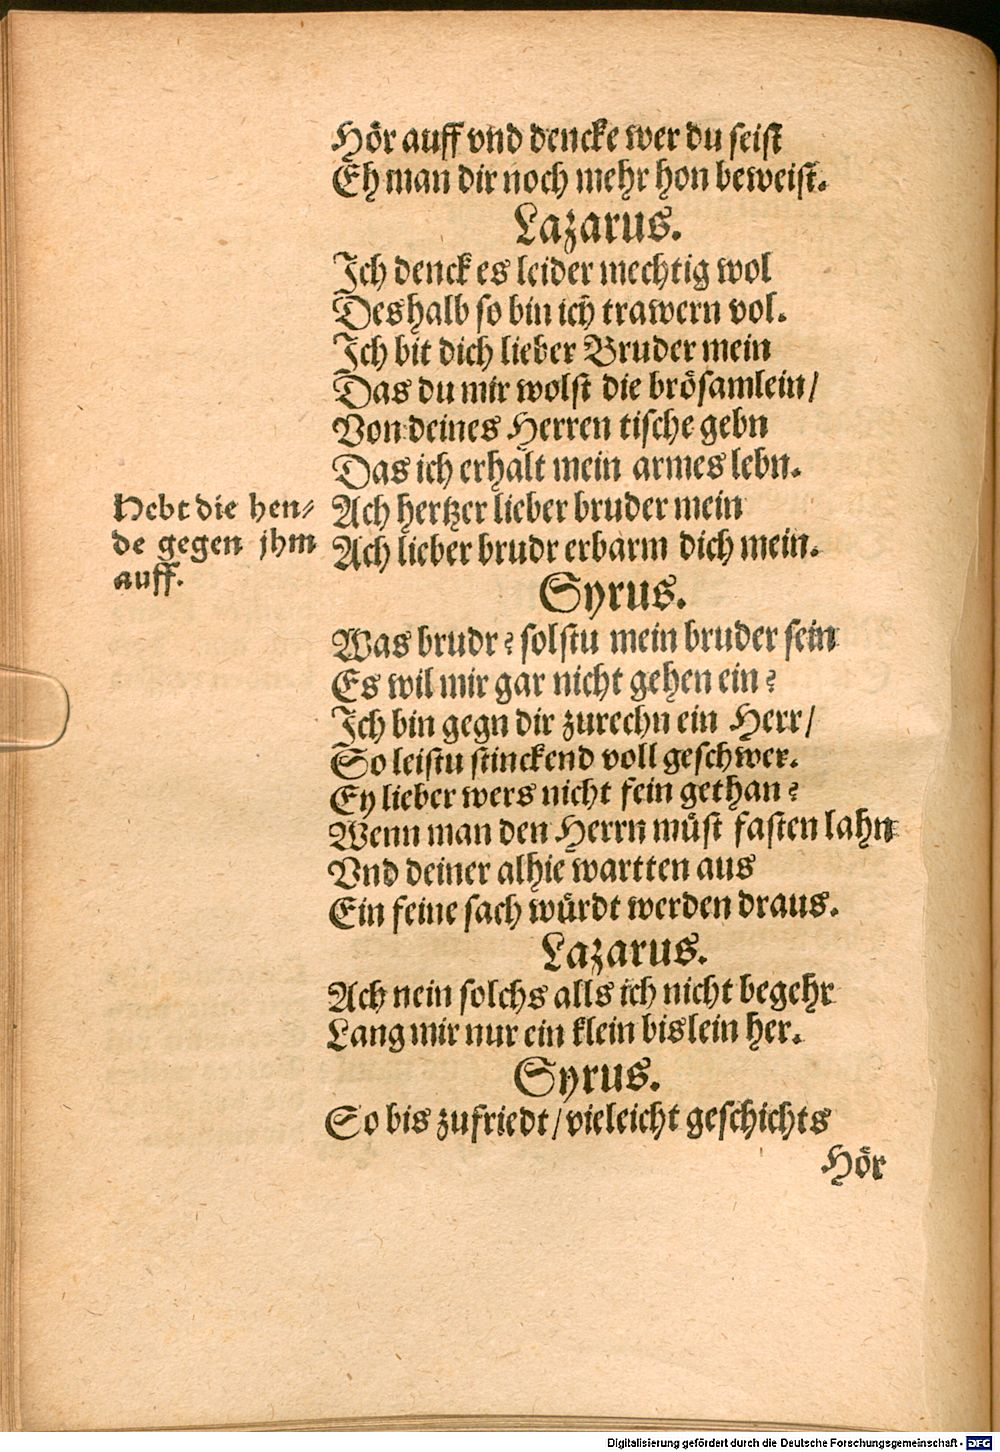 Hör auff vnd dencke wer du seist
Eh man dir noch mehr hon beweist.
Lazarus.
Ich denck es leider mechtig wol
Deshalb so bin ich trawern vol.
Ich bit dich lieber Bruder mein
Das du mir wolst die brösamlein/
Von deines Herren tische gebn
Das ich erhalt mein armes lebn.
Hebt die hen-
de gegen jhm
auff.
Ach hertzer lieber bruder mein
Ach lieber brudr erbarm dich mein.
Syrus.
Was brudr? solstu mein bruder sein
Es wil mir gar nicht gehen ein?
Ich bin gegn dir zurechn ein Herr/
So leistu stinckend voll geschwer.
Ey lieber wers nicht fein gethan?
Wenn man den Herrn müst fasten lahn
Vnd deiner alhie wartten aus
Ein feine sach würdt werden draus.
Lazarus.
Ach nein solchs alls ich nicht begehr
Lang mir nur ein klein bislein her.
Syrus.
So bis zufriedt/ vieleicht geschichts
Hör
Digitalisierung gefördert durch die Deutsche Forschungsgemeinschaft - DFG